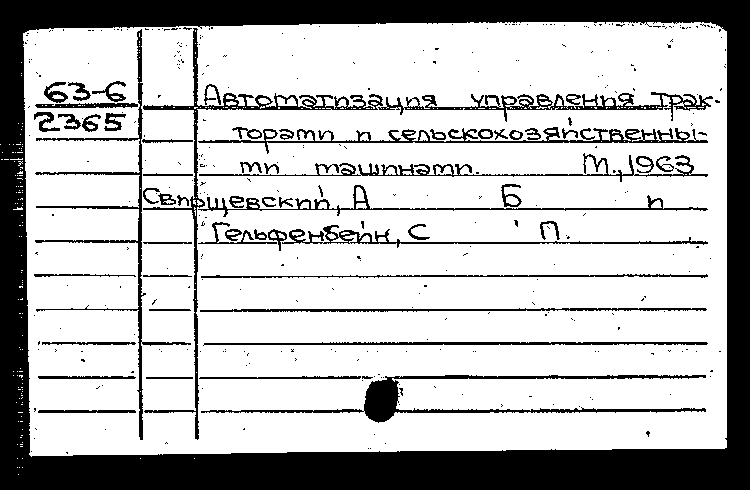 63-6 Автоматизация управления трак-
2365 торами и сельскохозяйственны-
ми машинами. М., 1963
Свирщевский, А Б и
Гельфенбейн, С П.